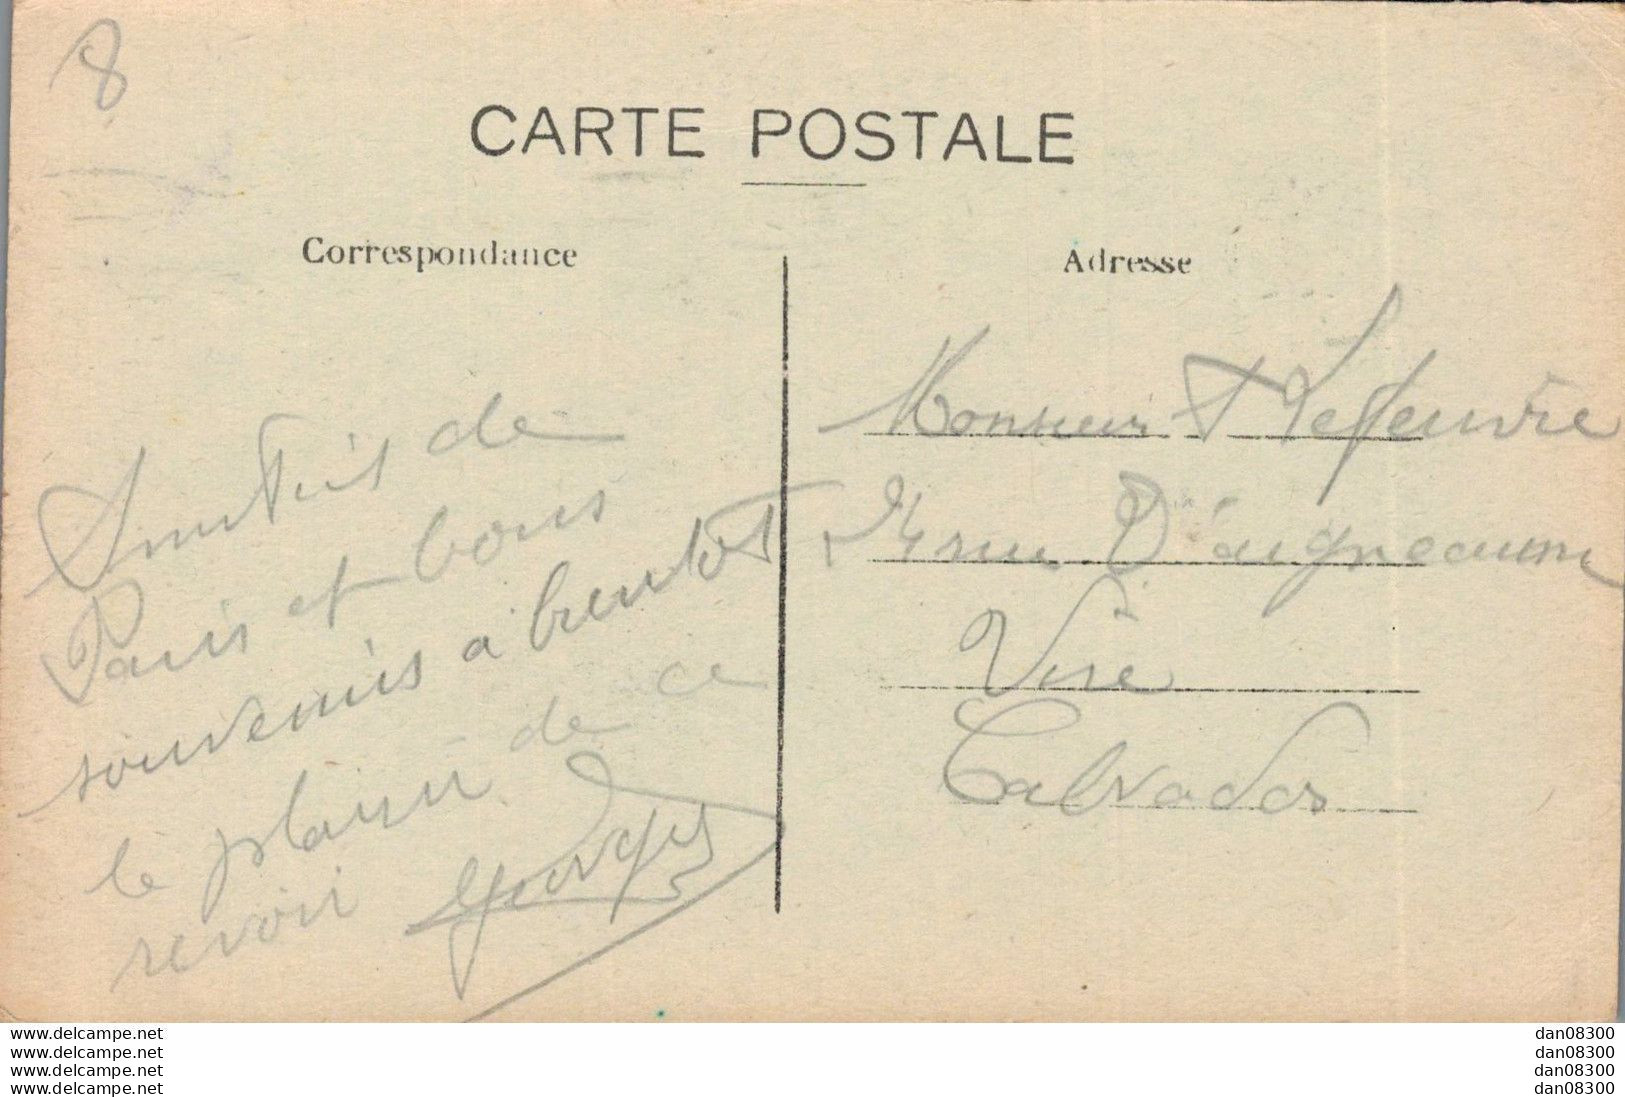 8
CARTE POSTALE
Correspondance
Amitiés de
Paris et bons
souvenirs a bientot
le plaisir de ce
revoir Georges
Adresse
Monsieur F Lefeuvre
24 rue D'aigneaux
Vire
Calvados
www.delcampe.net
www.delcampe.net
www.delcampe.net
www.delcampe.net
dan08300
dan08300
dan08300
dan08300